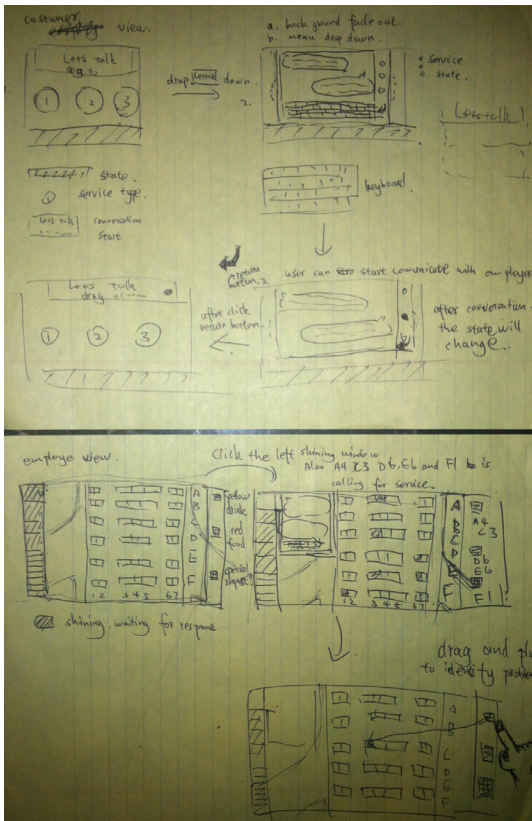 costumer
view.
Let's Talk
drag
1 2 3
drop down.
2.
a. back ground fade out.
b. menu drop down.
service
state.
Let's talk
state.
service type.
Let's talk
conversation
start
keyboard
return
button.
user can start comunicate with employee
Let's Talk
drag
1 2 3
after click
return button.
after conversation.
the state will
change.
employe view.
Click the left shining window
Also A4 C3 D6. E6 and F1 is
calling for service.
A
B
C
D
E
F
yellow
drink
red
food
special
request
1 2 3 4 5 6 7
shining, waiting for response
A
B
C
D
E
F
A4
C3
D6
E6
F1
1 2 3 4 5 6 7
drag and
to identify
A
B
C
D
E
F